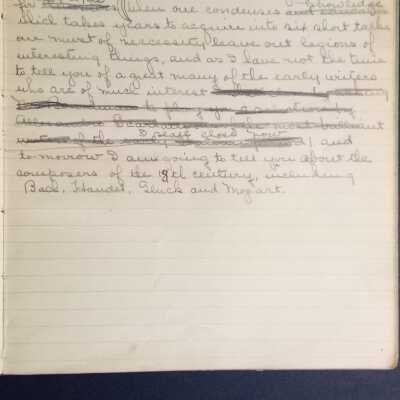 for When one condenses knowledge
which takes years to acquire into six short talks
one must of necessity leave out legions of
interesting things, and as I have not the time
to tell you of a great many of the early writers
who are of much interest
to play you a selection by
the most brilliant
I will close now
of the early and
to morrow I am going to tell you about the
composers of the 18th century, including
Bach, Handel, Gluck and Mozart.